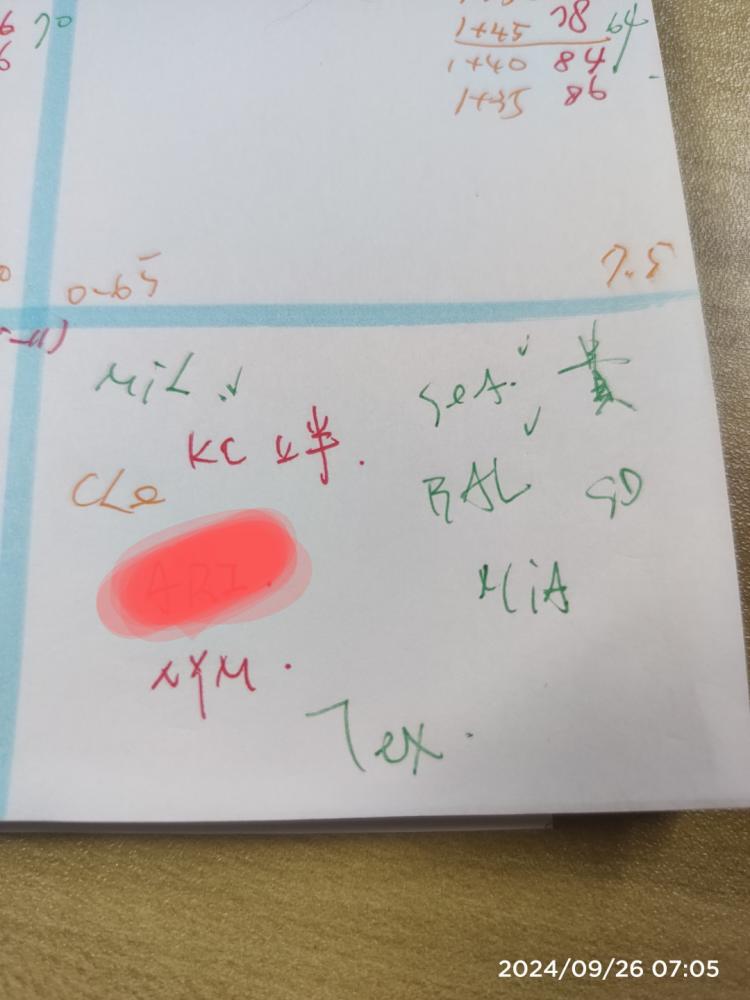 6 70
6
1+45 78 64
1+40 84
1+35 86
0-65
7.5
MiL ✓
SeA. ✓
KC 半.
CLe
BAL ✓ SD
ARI.
MiA
NYM.
Tex.
2024/09/26 07:05